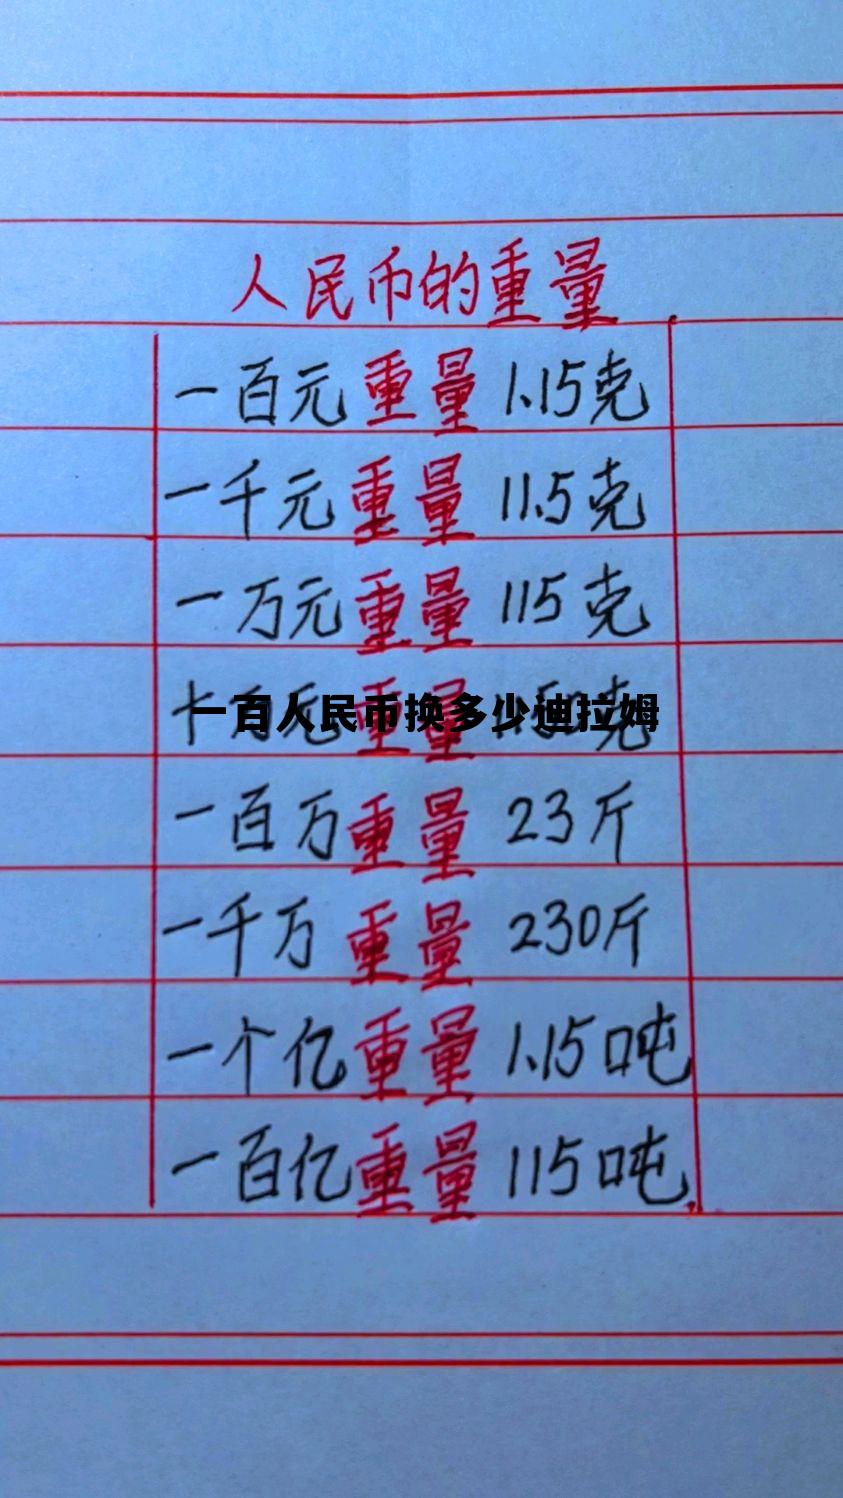 人民币的重量
一百元重量 1.15克
一千元重量 11.5克
一万元重量 115克
十万元重量 克
一百人民币换多少迪拉姆
一百万重量 23斤
一千万重量 230斤
一个亿重量 1.15吨
一百亿重量 115吨